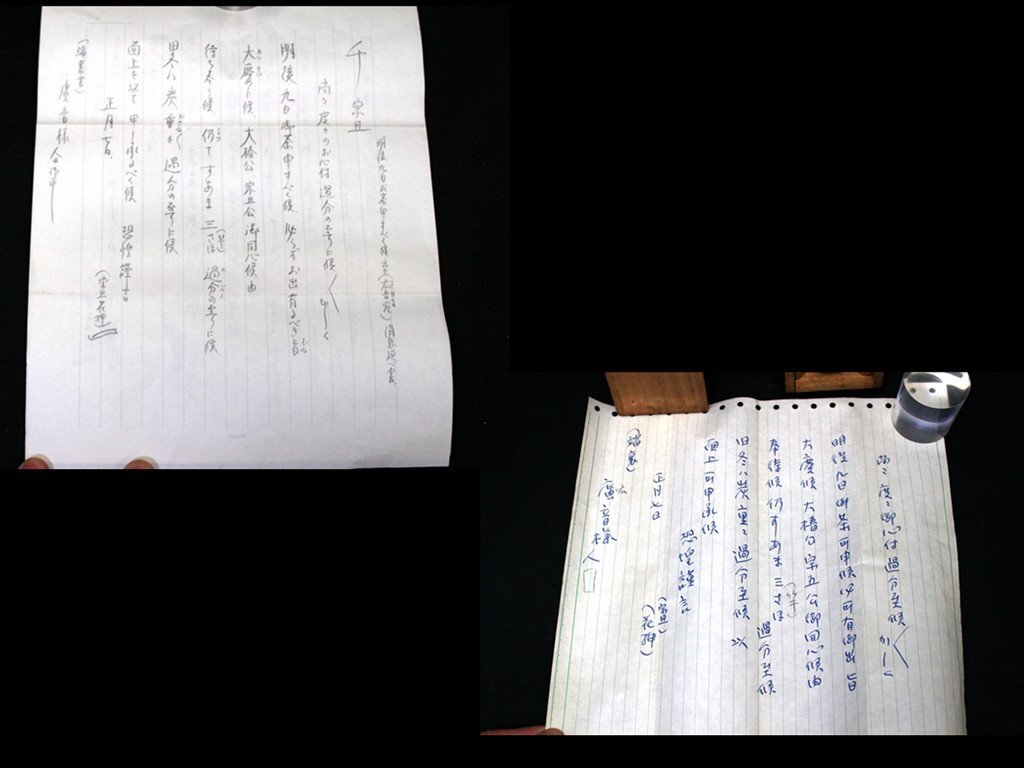 千宗旦
明後九日お茶申すべく候
尚々度々のお心付過分の至りに候 かしく
明後九日御茶申すべく候 必らずお出有るべき旨
大慶に候 大橋公 宗五公 御同心候由
待ち奉り候 仍て すあま 三さほ 過分の至りに候
旧冬ハ炭重々過分の至りに候
面上を以て申し承るべく候 恐惶謹言
正月七日
(宗旦花押)
(端裏書)
廣音様
尚々度々御心付過分至候 かしく
明後九日御茶可申候必可有御出旨
大慶候 大橋公 宗五公御同心候由
奉待候 仍すあま 三さほ(竿) 過分至候
旧冬ハ炭重々過分至候 以
面上可申承候
恐惶謹言
正月七日
(宗旦)
(花押)
(端裏)
廣音様 人